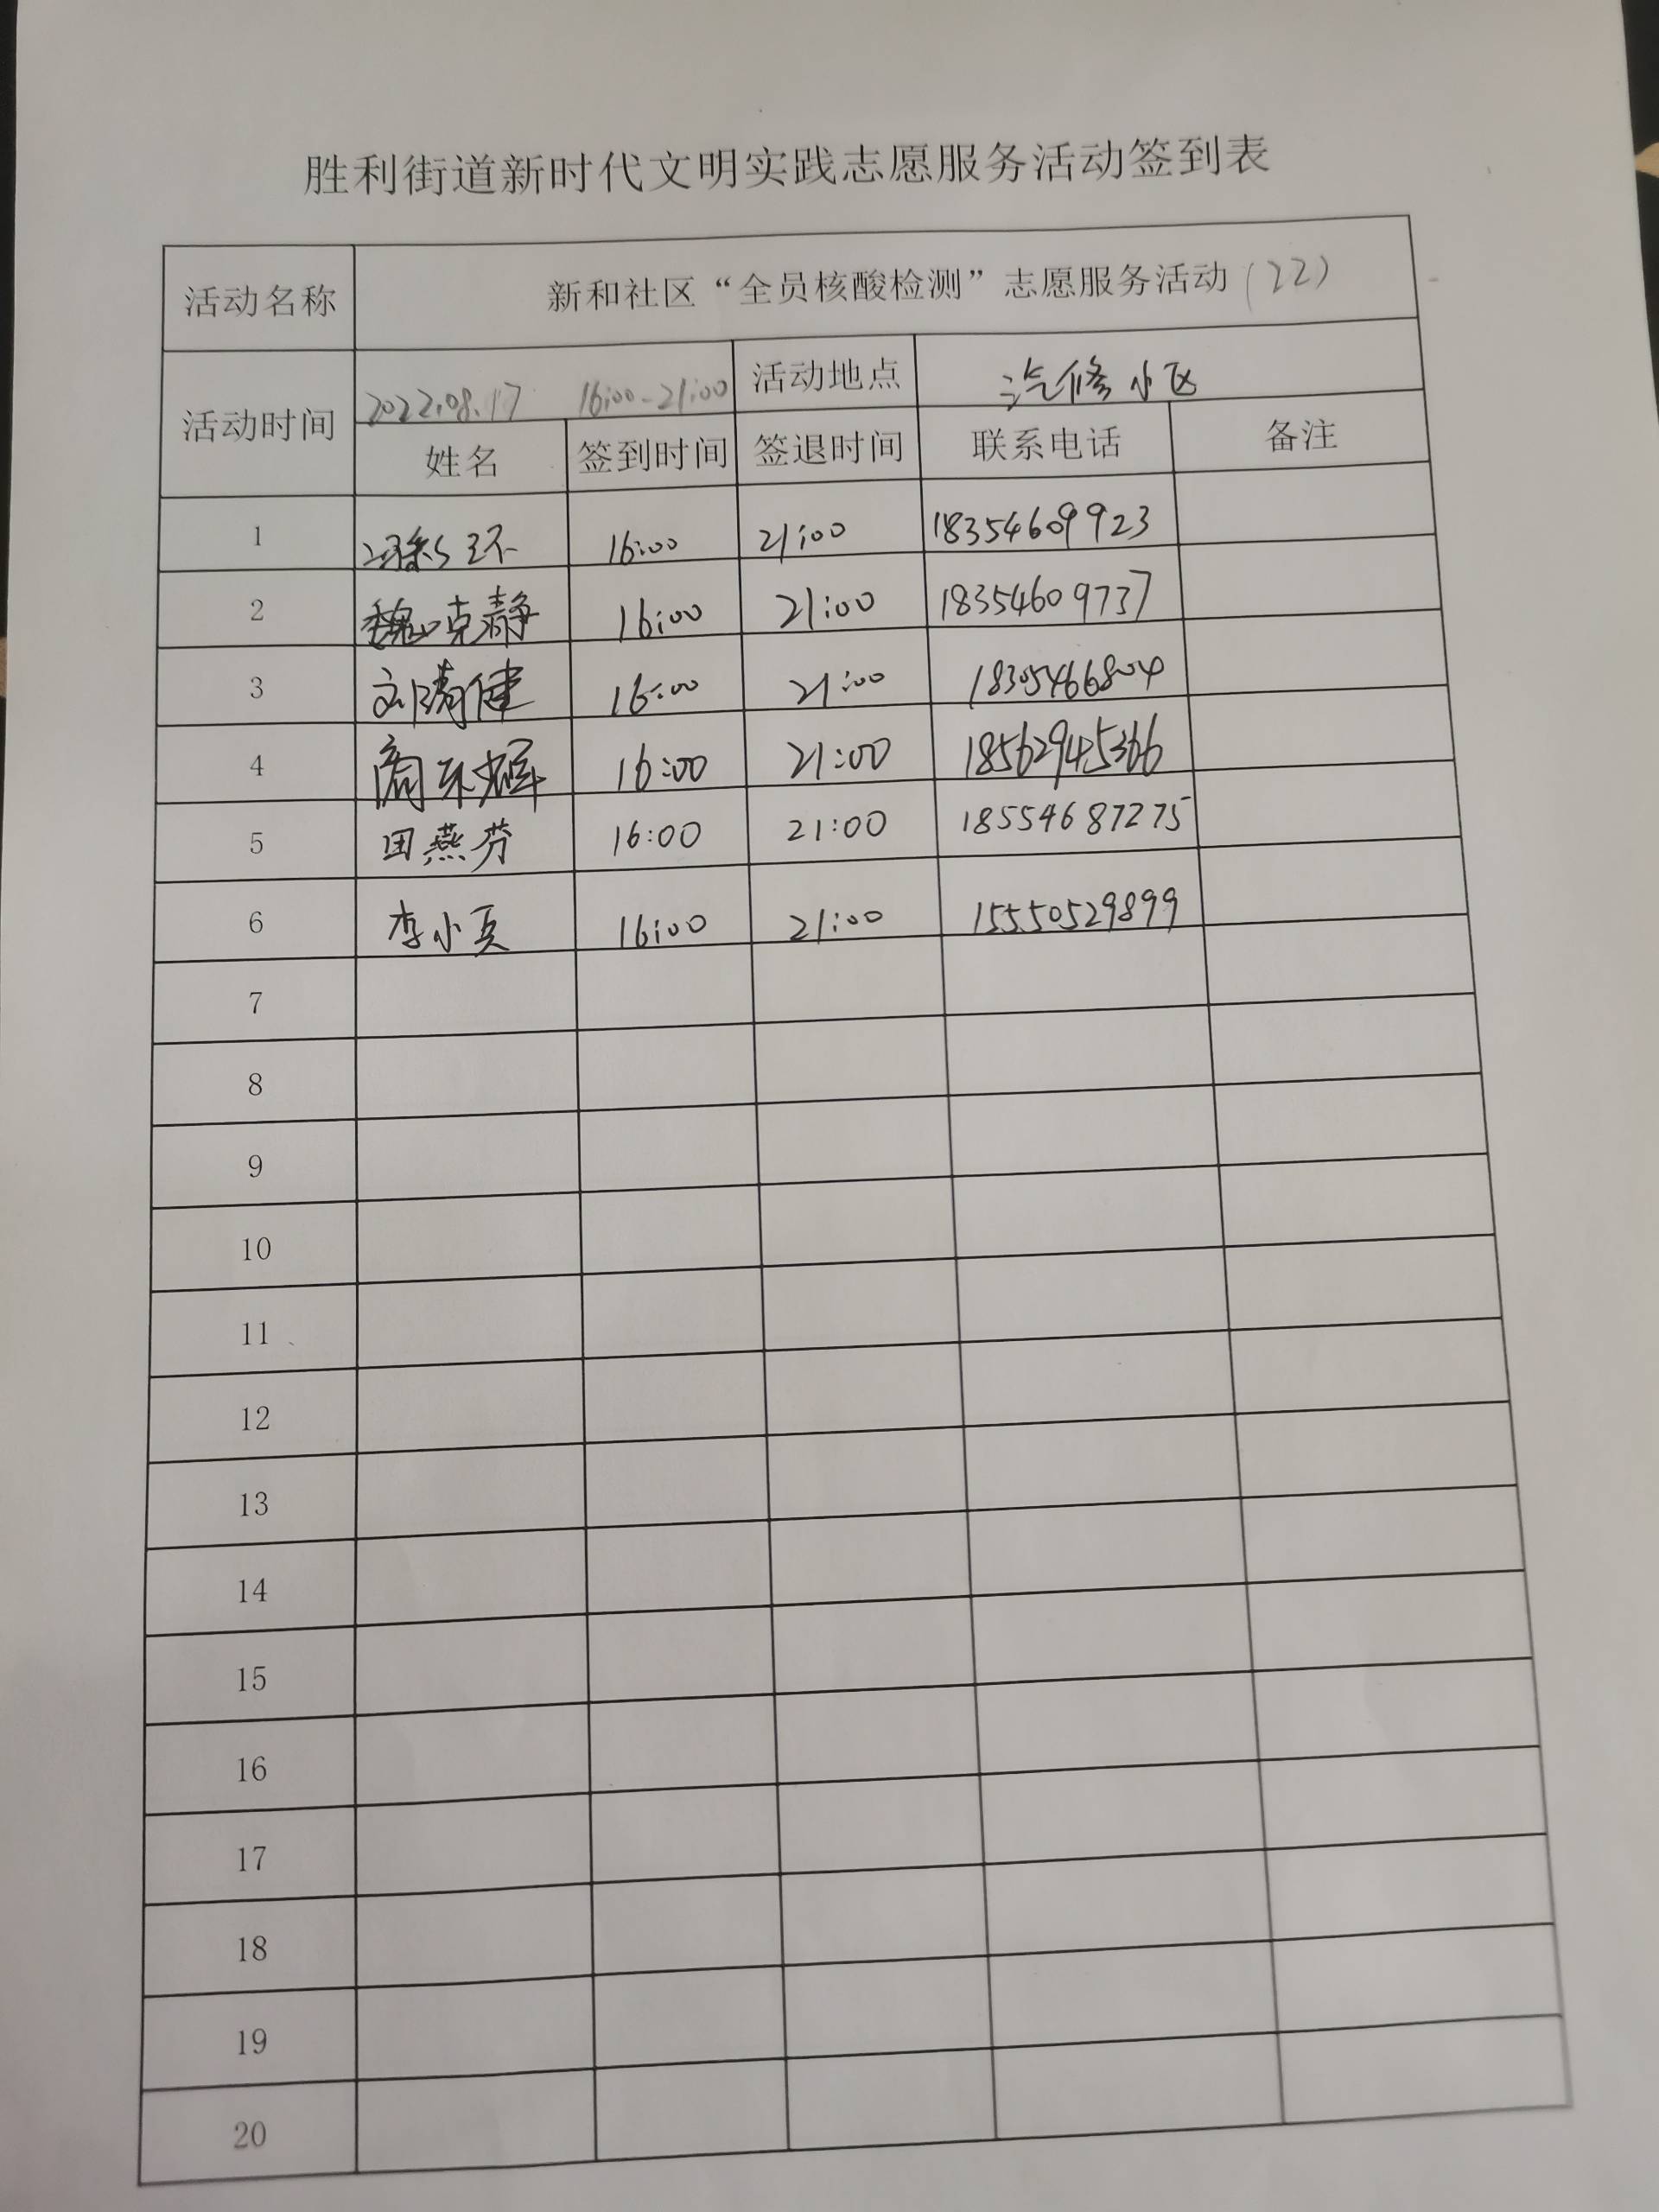 胜利街道新时代文明实践志愿服务活动签到表
活动名称 新和社区“全员核酸检测”志愿服务活动(22)
活动时间 2022.08.17 16:00-21:00 活动地点 汽修小区
姓名 签到时间 签退时间 联系电话 备注
1 环 16:00 21:00 18354609923
2 魏克静 16:00 21:00 18354609737
3 刘清健 16:00 21:00 18305466804
4 商 辉 16:00 21:00 18562945366
5 田燕芬 16:00 21:00 18554687275
6 李小 16:00 21:00 15550529899
7
8
9
10
11
12
13
14
15
16
17
18
19
20